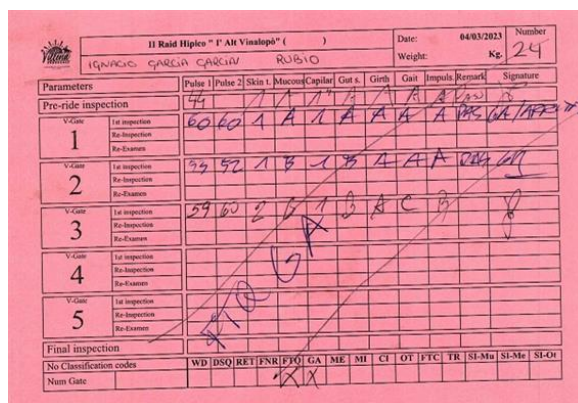 Villena
II Raid Hípico "1º Alt Vinalopò" ( )
Date: 04/03/2023
Number
24
IGNACIO GARCÍA GARCÍA RUBIO
Weight: Kg.
Parameters Pulse 1 Pulse 2 Skin t. Mucous Capilar Gut s. Girth Gait Impuls. Remark Signature
Pre-ride inspection 44 1 1 1" A 1 A A
V-Gate 1 1st inspection 60 60 1 A 1 A A A A PAS
Re-Inspection
Re-Examen
V-Gate 2 1st inspection 55 52 1 B 1 B 1 A A PAS
Re-Inspection
Re-Examen
V-Gate 3 1st inspection 59 60 2 B 1 B A C B
Re-Inspection
Re-Examen
V-Gate 4 1st inspection
Re-Inspection
Re-Examen
V-Gate 5 1st inspection
Re-Inspection
Re-Examen
FTQ GA
Final inspection
No Classification codes WD DSQ RET FNR FTQ GA ME MI CI OT FTC TR SI-Mu SI-Me SI-Ot
Num Gate X X